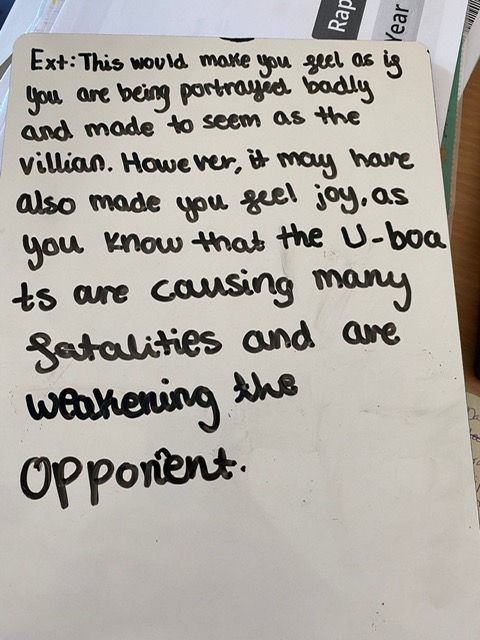 Rap
Year
Ext: This would make you feel as if
you are being portrayed badly
and made to seem as the
villian. However, it may have
also made you feel joy, as
you know that the U-boa
ts are causing many
fatalities and are
weakening the
opponent.